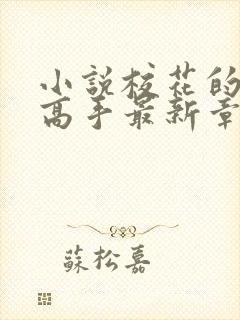 小說校花的
高手最新章
蘇松嘉